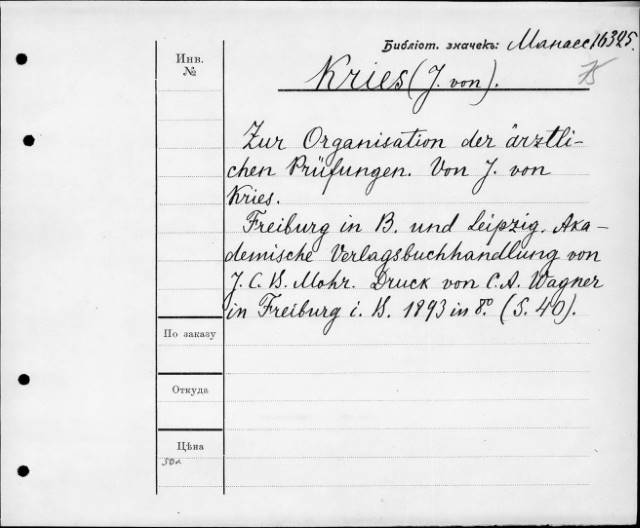 Библіот. значекъ: Манасс 16325.
Инв.
№
Kries (J. von).
Zur Organisation der ärztli-
chen Prüfungen. Von J. von
Kries.
Freiburg in B. und Leipzig. Aka-
demische Verlagsbuchhandlung von
J. C. B. Mohr. Druck von C. A. Wagner
in Freiburg i. B. 1893 in 8º. (S. 40).
По заказу
Откуда
Цѣна